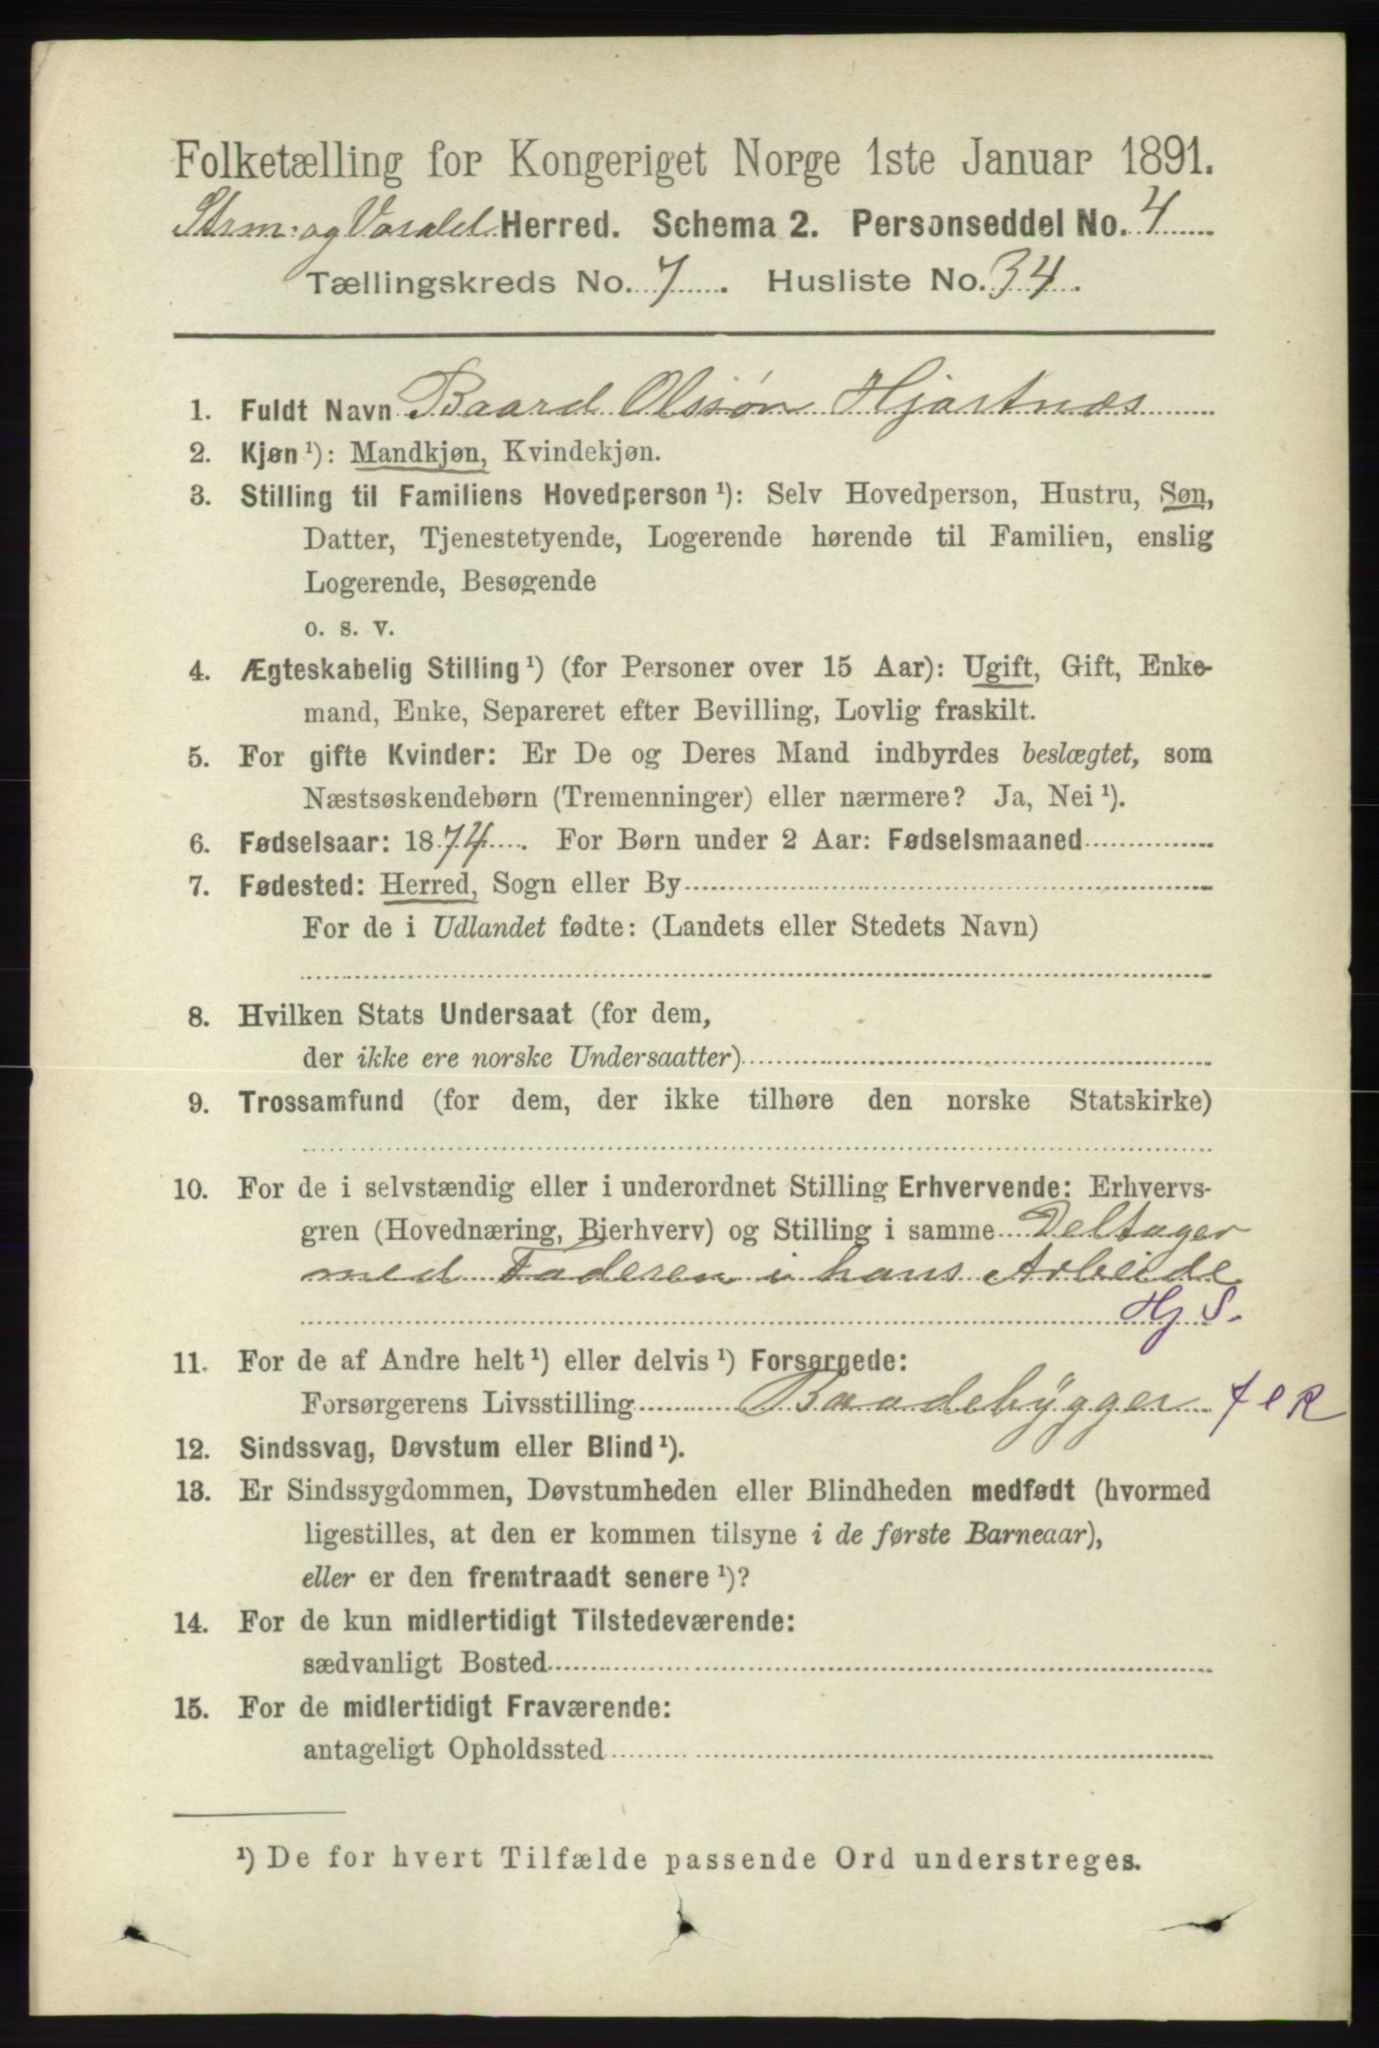 Folketælling for Kongeriget Norge 1ste Januar 1891.
Strm. og Varald. Herred. Schema 2. Personseddel No. 4
Tællingskreds No. 7. Husliste No. 34.
1. Fuldt Navn Baard Olssøn Hjartnæs
2. Kjøn ¹): Mandkjøn, Kvindekjøn.
3. Stilling til Familiens Hovedperson ¹): Selv Hovedperson, Hustru, Søn,
Datter, Tjenestetyende, Logerende hørende til Familien, enslig
Logerende, Besøgende
o. s. v.
4. Ægteskabelig Stilling ¹) (for Personer over 15 Aar): Ugift, Gift, Enke-
mand, Enke, Separeret efter Bevilling, Lovlig fraskilt.
5. For gifte Kvinder: Er De og Deres Mand indbyrdes beslægtet, som
Næstsøskendebørn (Tremenninger) eller nærmere? Ja, Nei ¹).
6. Fødselsaar: 1874. For Børn under 2 Aar: Fødselsmaaned
7. Fødested: Herred, Sogn eller By
For de i Udlandet fødte: (Landets eller Stedets Navn)
8. Hvilken Stats Undersaat (for dem,
der ikke ere norske Undersaatter)
9. Trossamfund (for dem, der ikke tilhøre den norske Statskirke)
10. For de i selvstændig eller i underordnet Stilling Erhvervende: Erhvervs-
gren (Hovednæring, Bierhverv) og Stilling i samme Deltager
med Faderen i hans Arbeide
Hj S.
11. For de af Andre helt ¹) eller delvis ¹) Forsørgede:
Forsørgerens Livsstilling Baadebygger f e R
12. Sindssvag, Døvstum eller Blind ¹).
13. Er Sindssygdommen, Døvstumheden eller Blindheden medfødt (hvormed
ligestilles, at den er kommen tilsyne i de første Barneaar),
eller er den fremtraadt senere ¹)?
14. For de kun midlertidigt Tilstedeværende:
sædvanligt Bosted
15. For de midlertidigt Fraværende:
antageligt Opholdssted
¹) De for hvert Tilfælde passende Ord understreges.